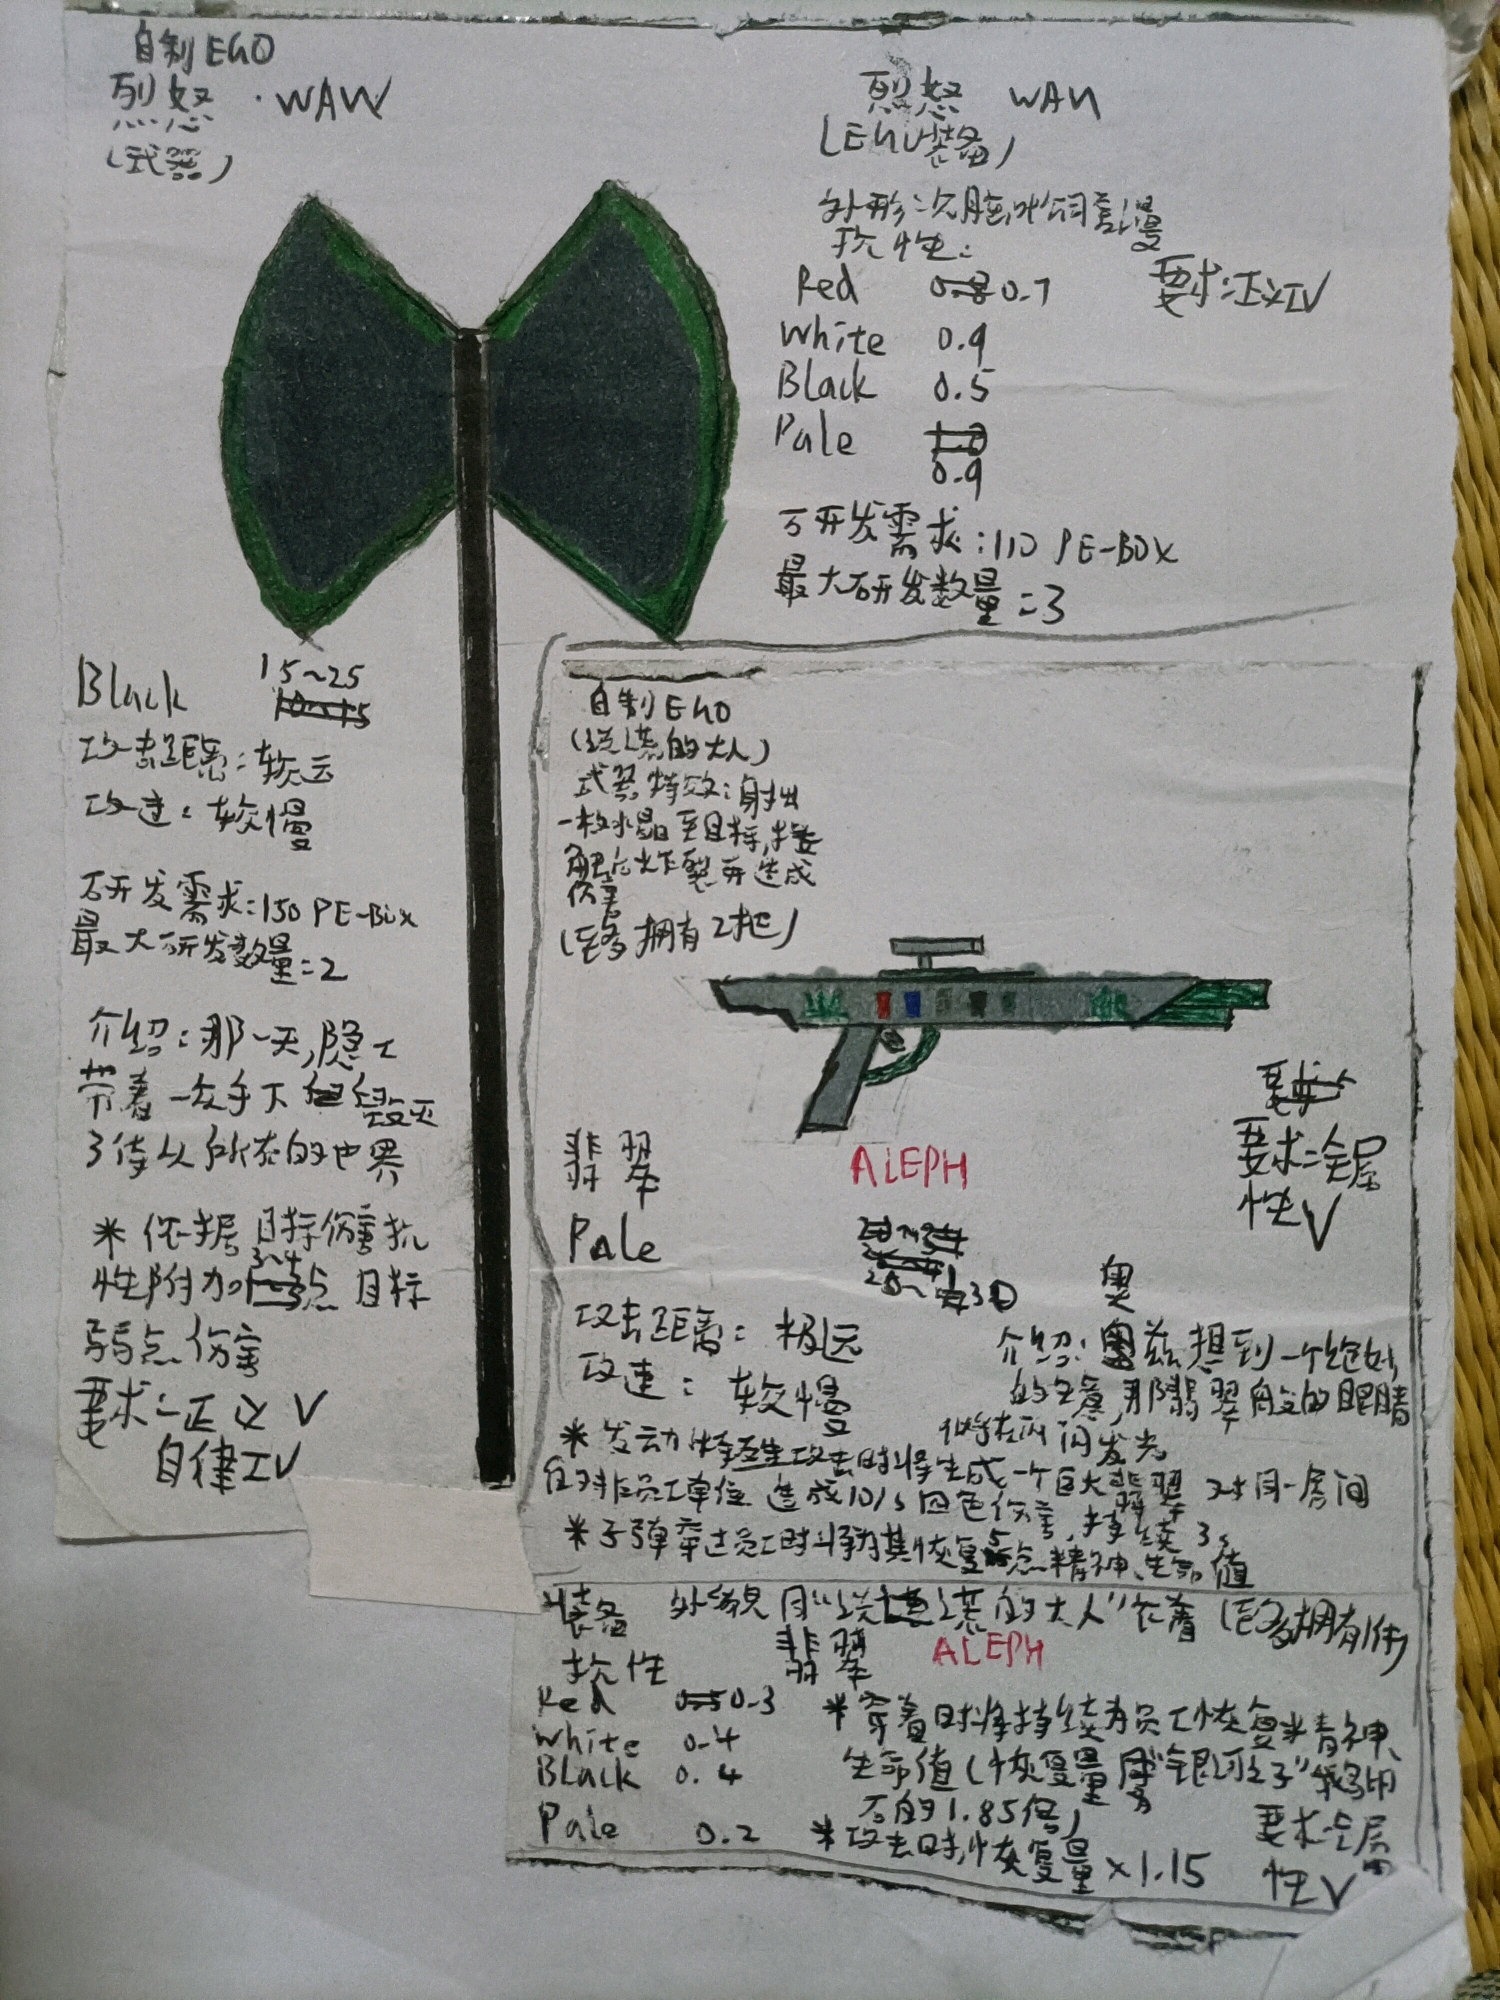 自制EGO
烈怒 · WAW
(武器)
Black 15~25
攻击距离：较远
攻速：较慢
研发需求：150 PE-Box
最大研发数量=2
介绍：那一天,隐士
带着一众手下 毁灭
了侍从所在的世界
* 依据目标伤害抗
性附加3~4点 目标
弱点伤害
要求：正义V
自律IV
烈怒 WAW
(EGO装备)
抗性：
Red 0.7 要求：正义IV
White 0.9
Black 0.5
Pale 0.9
研发需求：110 PE-BOX
最大研发数量=3
自制EGO
(说谎的大人)
武器特效：射出
一枚水晶至目标,接
触后炸裂并造成
伤害
(至多拥有2把)
翡翠 ALEPH
要求：全属
性V
Pale
攻击距离：极远
攻速：较慢
奥
介绍：奥兹想到一个绝妙
的主意,那翡翠般的眼睛
似乎在闪闪发光
* 发动特殊攻击时将生成一个巨大翡翠 对同一房间
的非员工单位 造成10/s 四色伤害,持续 3s
* 子弹穿过员工时将为其恢复5点精神、生命值
装备 外貌同“说谎的大人”衣着 (至多拥有1件)
抗性 翡翠 ALEPH
Red 0.3
White 0.4
Black 0.4
Pale 0.2
* 穿着时将持续为员工恢复精神、
生命值(恢复量为“银河之子”鹅卵
石的1.85倍)
* 攻击时,恢复量×1.15
要求：全属
性V